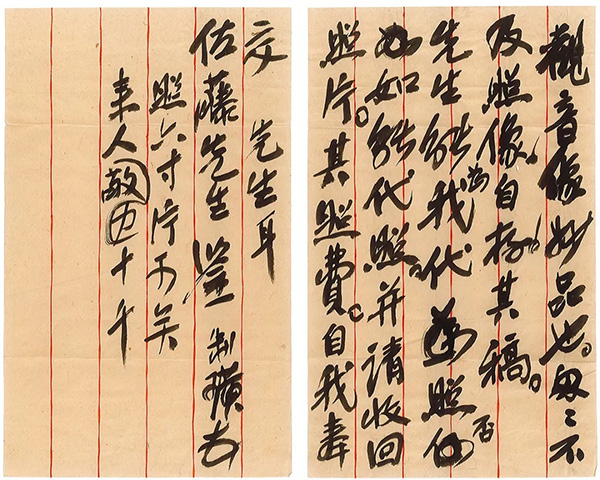 觀音像妙品也。不
及照像自存其稿。
先生能為我代照否
如能代照。并請收回
照片。其照費。自我奉
交 先生耳
佐藤先生鑒 制璜
照六寸片可矣
來人敬十千